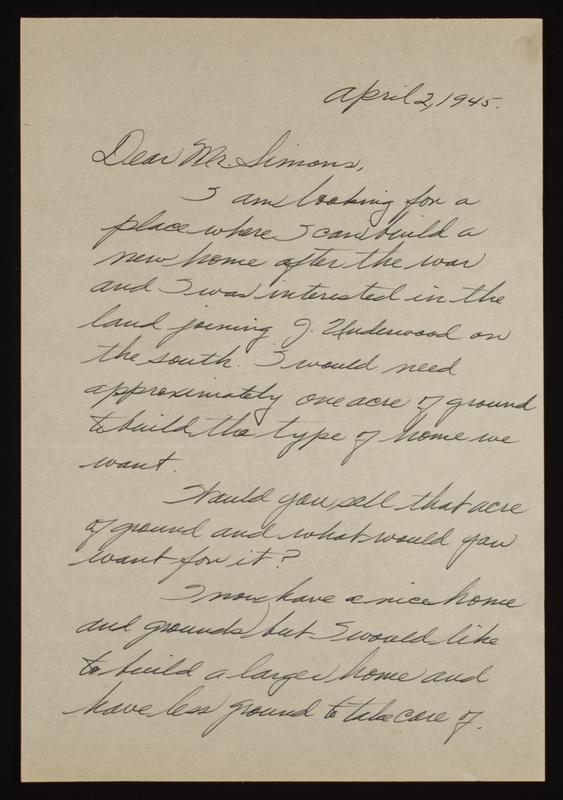 April 2, 1945.
Dear Mr. Simons,
I am looking for a
place where I can build a
new home after the war
and I was interested in the
land joining J. Underwood on
the south. I would need
approximately one acre of ground
to build the type of home we
want.
Would you sell that acre
of ground and what would you
want for it?
I now have a nice home
and grounds but I would like
to build a larger home and
have less ground to take care of.